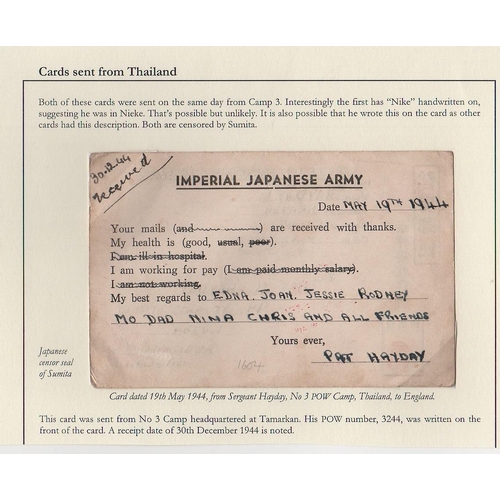 Cards sent from Thailand
Both of these cards were sent on the same day from Camp 3. Interestingly the first has “Nike” handwritten on,
suggesting he was in Nieke. That’s possible but unlikely. It is also possible that he wrote this on the card as other
cards had this description. Both are censored by Sumita.
30.12.44
received
IMPERIAL JAPANESE ARMY
Date MAY 19TH 1944
Your mails (and) are received with thanks.
My health is (good, usual, poor).
I am ill in hospital.
I am working for pay (I am paid monthly salary).
I am not working.
My best regards to EDNA. JOAN. JESSIE RODNEY
MO DAD NINA CHRIS AND ALL FRIENDS
Yours ever,
PAT HAYDAY
1604
Japanese
censor seal
of Sumita
Card dated 19th May 1944, from Sergeant Hayday, No 3 POW Camp, Thailand, to England.
This card was sent from No 3 Camp headquartered at Tamarkan. His POW number, 3244, was written on the
front of the card. A receipt date of 30th December 1944 is noted.